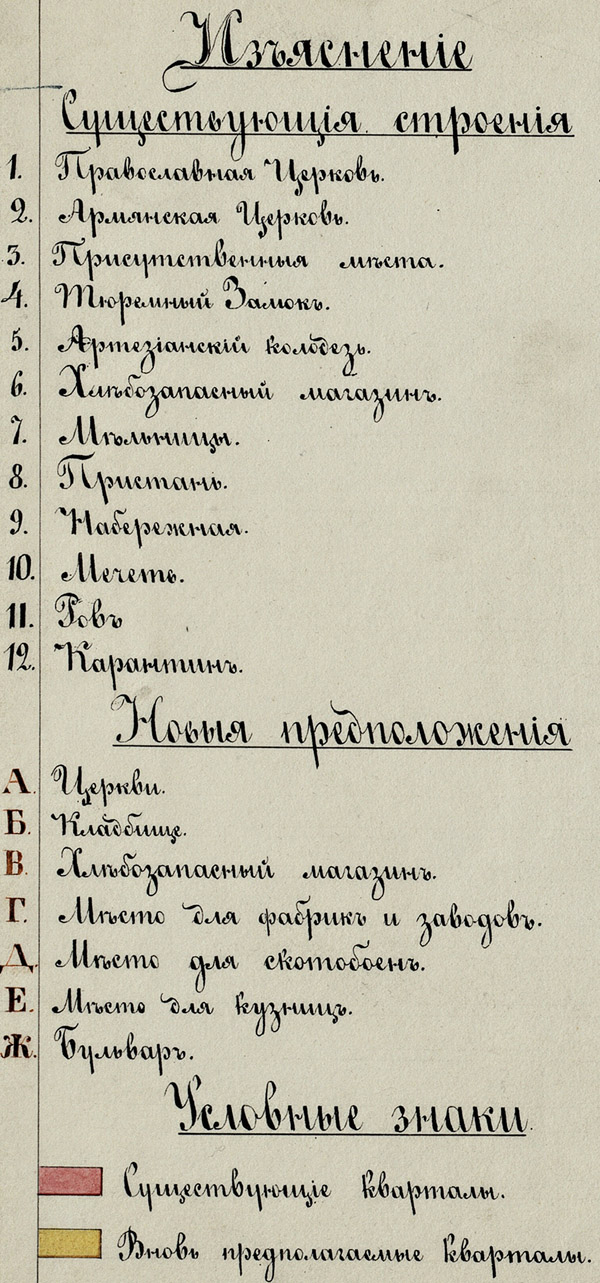 Изъясненіе
Существующія строенія
1. Православная Церковь.
2. Армянская Церковь.
3. Присутственныя мѣста.
4. Тюремный Замокъ.
5. Артезіанскій колодезь.
6. Хлѣбозапасный магазинъ.
7. Мѣльницы.
8. Пристань.
9. Набережная.
10. Мечеть.
11. Ровъ
12. Карантинъ.
Новыя предположенія
А. Церкви.
Б. Кладбище.
В. Хлѣбозапасный магазинъ.
Г. Мѣсто для фабрикъ и заводовъ.
Д. Мѣсто для скотобоенъ.
Е. Мѣсто для кузницъ.
Ж. Бульваръ.
Условные знаки.
Существующіе кварталы.
Вновь предполагаемые кварталы.